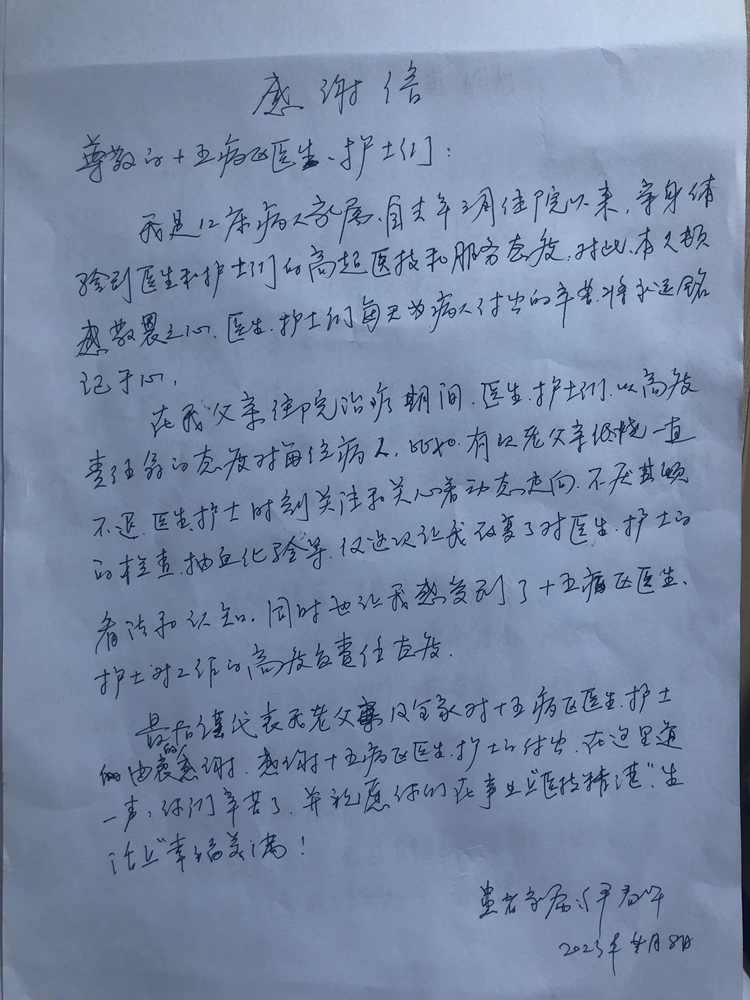 感谢信
尊敬的十五病区医生、护士们：
我是12床病人家属，自去年三月住院以来，亲身体
验到医生和护士们的高超医技和服务态度，对此，本人顿
感敬畏之心，医生、护士们每天为病人付出的辛苦，将永远铭
记于心，
在我父亲住院治疗期间，医生、护士们，以高度
责任的态度对每位病人，比如：有次老父亲低烧一直
不退，医生、护士时刻关注和关心着动态走向，不厌其烦
的检查、抽血化验等，仅这次让我改变了对医生、护士的
看法和认知，同时也让我感受到了十五病区医生、
护士对工作的高度负责任态度。
最后谨代表我老父亲及全家对十五病区医生、护士
的由衷感谢，感谢十五病区医生、护士的付出，在这里道
一声：你们辛苦了，并祝愿你们在事业上“医技精湛”、生
活上“幸福美满！
患者家属：
2023年4月8日